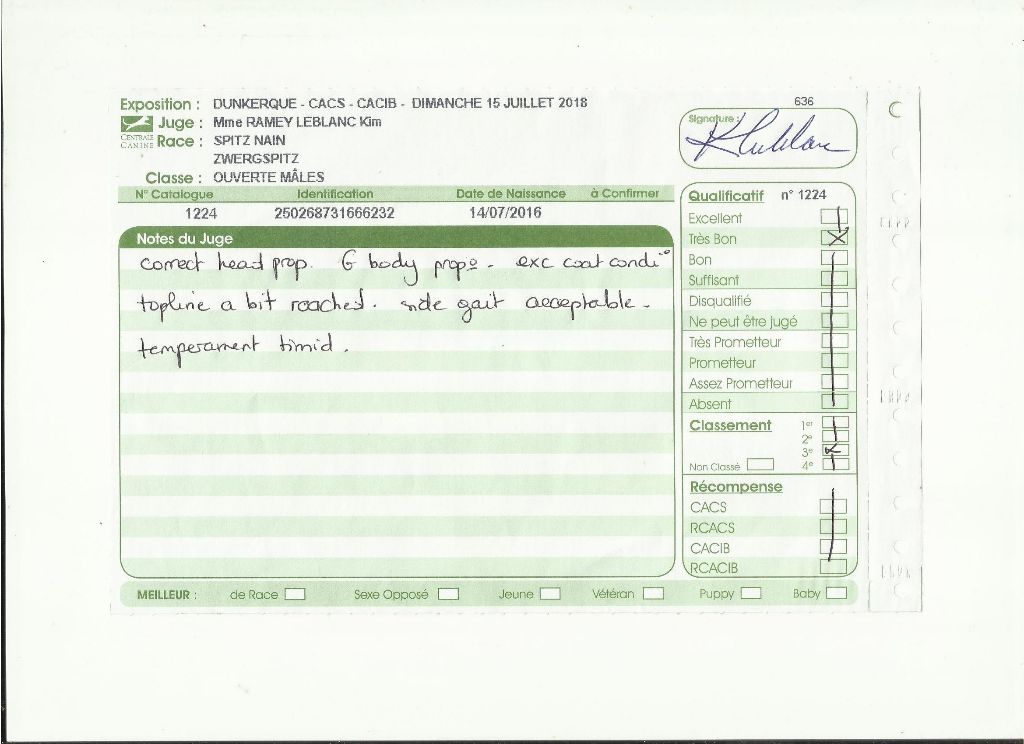 636
Exposition : DUNKERQUE - CACS - CACIB - DIMANCHE 15 JUILLET 2018
Juge : Mme RAMEY LEBLANC Kim
CENTRALE CANINE
Race : SPITZ NAIN
ZWERGSPITZ
Classe : OUVERTE MÂLES
Signature :
N° Catalogue Identification Date de Naissance à Confirmer
1224 250268731666232 14/07/2016
Notes du Juge
correct head prop. G body propo - exc coat condi°
topline a bit roached. side gait acceptable -
temperament timid.
Qualificatif n° 1224
Excellent
Très Bon
Bon
Suffisant
Disqualifié
Ne peut être jugé
Très Prometteur
Prometteur
Assez Prometteur
Absent
Classement 1er
2e
3e
Non Classé 4e
Récompense
CACS
RCACS
CACIB
RCACIB
MEILLEUR : de Race Sexe Opposé Jeune Vétéran Puppy Baby